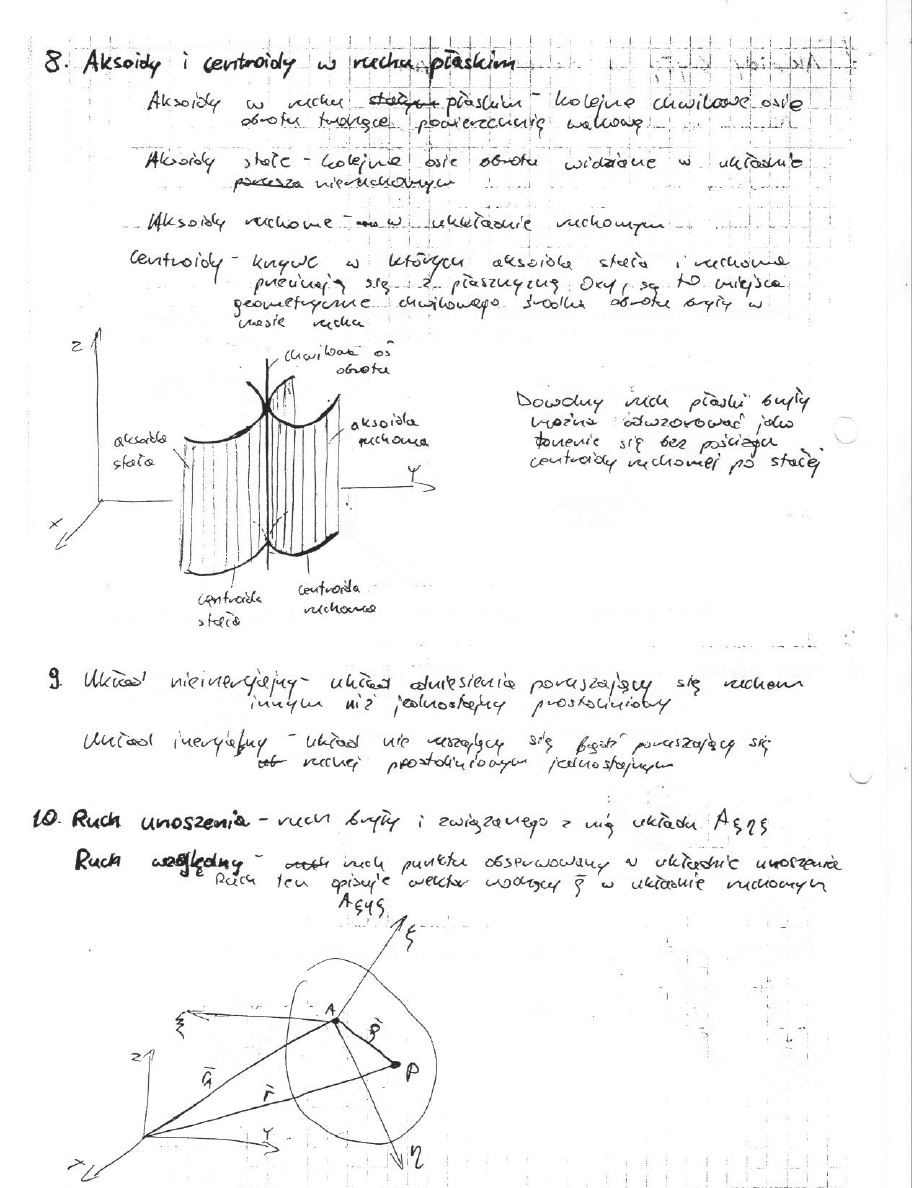 8. Aksoidy i centroidy w ruchu płaskim
Aksoidy w ruchu płaskim - kolejne chwilowe osie
obrotu tworzące powierzchnię walcową
Aksoidy stałe - kolejne osie obrotu widziane w układzie
nieruchomym
Aksoidy ruchome - w układzie ruchomym
Centroidy - krzywe w których aksoida stała i ruchoma
przecinają się z płaszczyzną Oxy, są to miejsca
geometryczne chwilowego środka obrotu bryły w
czasie ruchu
z
chwilowa oś
obrotu
aksoida
stała
aksoida
ruchoma
Y
x
centroida
stała
centroida
ruchoma
Dowolny ruch płaski bryły
można odwzorować jako
toczenie się bez poślizgu
centroidy ruchomej po stałej
9. Układ nieinercjalny - układ odniesienia poruszający się ruchem
innym niż jednostajny prostoliniowy
Układ inercjalny - układ nie ruszający się bądź poruszający się
ruchem prostoliniowym jednostajnym
10. Ruch unoszenia - ruch bryły i związanego z nią układu Aξηζ
Ruch względny - ruch punktu obserwowany w układzie unoszenia
Ruch ten opisuje wektor wodzący ρ̄ w układzie ruchomym
Aξηζ
ξ
A
ζ
ρ̄
z
P
r̄
Y
x
η